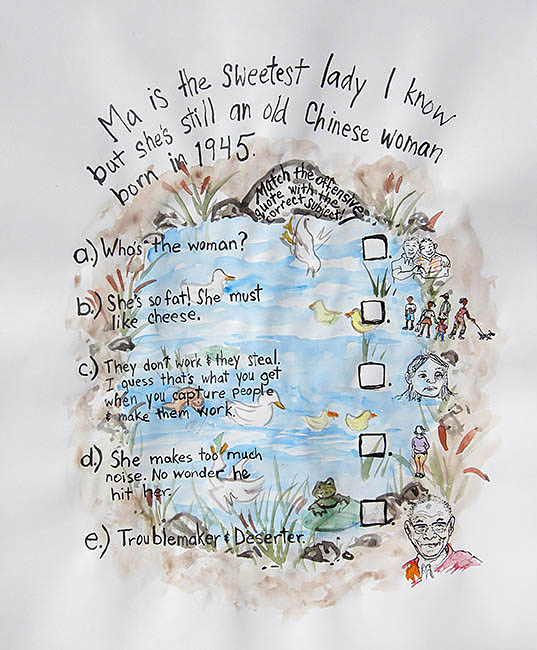 Ma is the sweetest lady I know
but she's still an old Chinese woman
born in 1945.
Match the offensive
quote with the
correct subject!
a.) Who's the woman?
b.) She's so fat! She must
like cheese.
c.) They don't work & they steal.
I guess that's what you get
when you capture people
& make them work.
d.) She makes too much
noise. No wonder he
hit her.
e.) Troublemaker & Deserter.